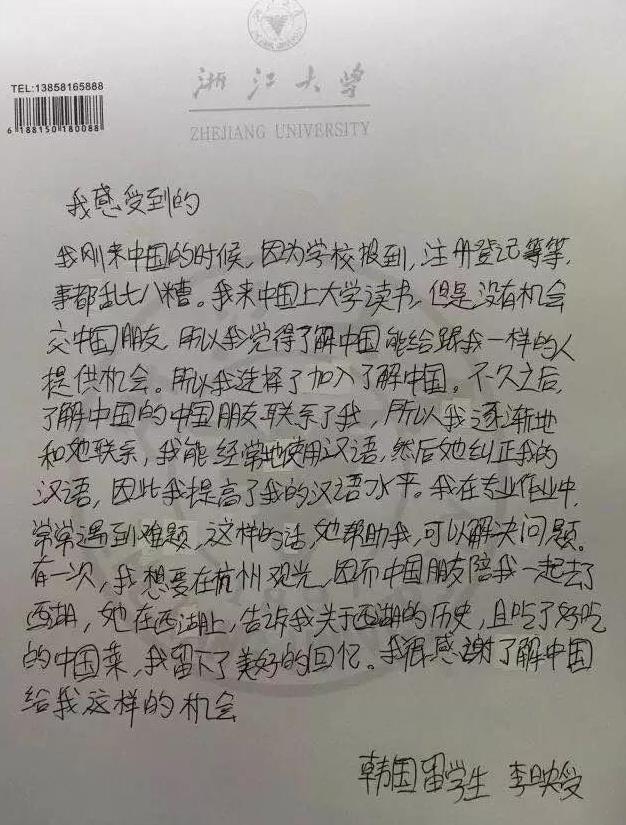 TEL:13858165888
6 188150 180088
浙江大学
ZHEJIANG UNIVERSITY
我感受到的
我刚来中国的时候，因为学校报到，注册登记等等，
事都乱七八糟。我来中国上大学读书，但是没有机会
交中国朋友，所以我觉得了解中国能给跟我一样的人
提供机会。所以我选择了加入了解中国。不久之后，
了解中国的中国朋友联系了我，所以我逐渐地
和她联系，我能经常地使用汉语，然后她纠正我的
汉语，因此我提高了我的汉语水平。我在专业作业中，
常常遇到难题，这样的话她帮助我，可以解决问题。
有一次，我想要在杭州观光，因而中国朋友陪我一起去了
西湖，她在西湖上，告诉我关于西湖的历史，且吃了好吃
的中国菜，我留下了美好的回忆。我很感谢了解中国
给我这样的机会
韩国留学生 李映受